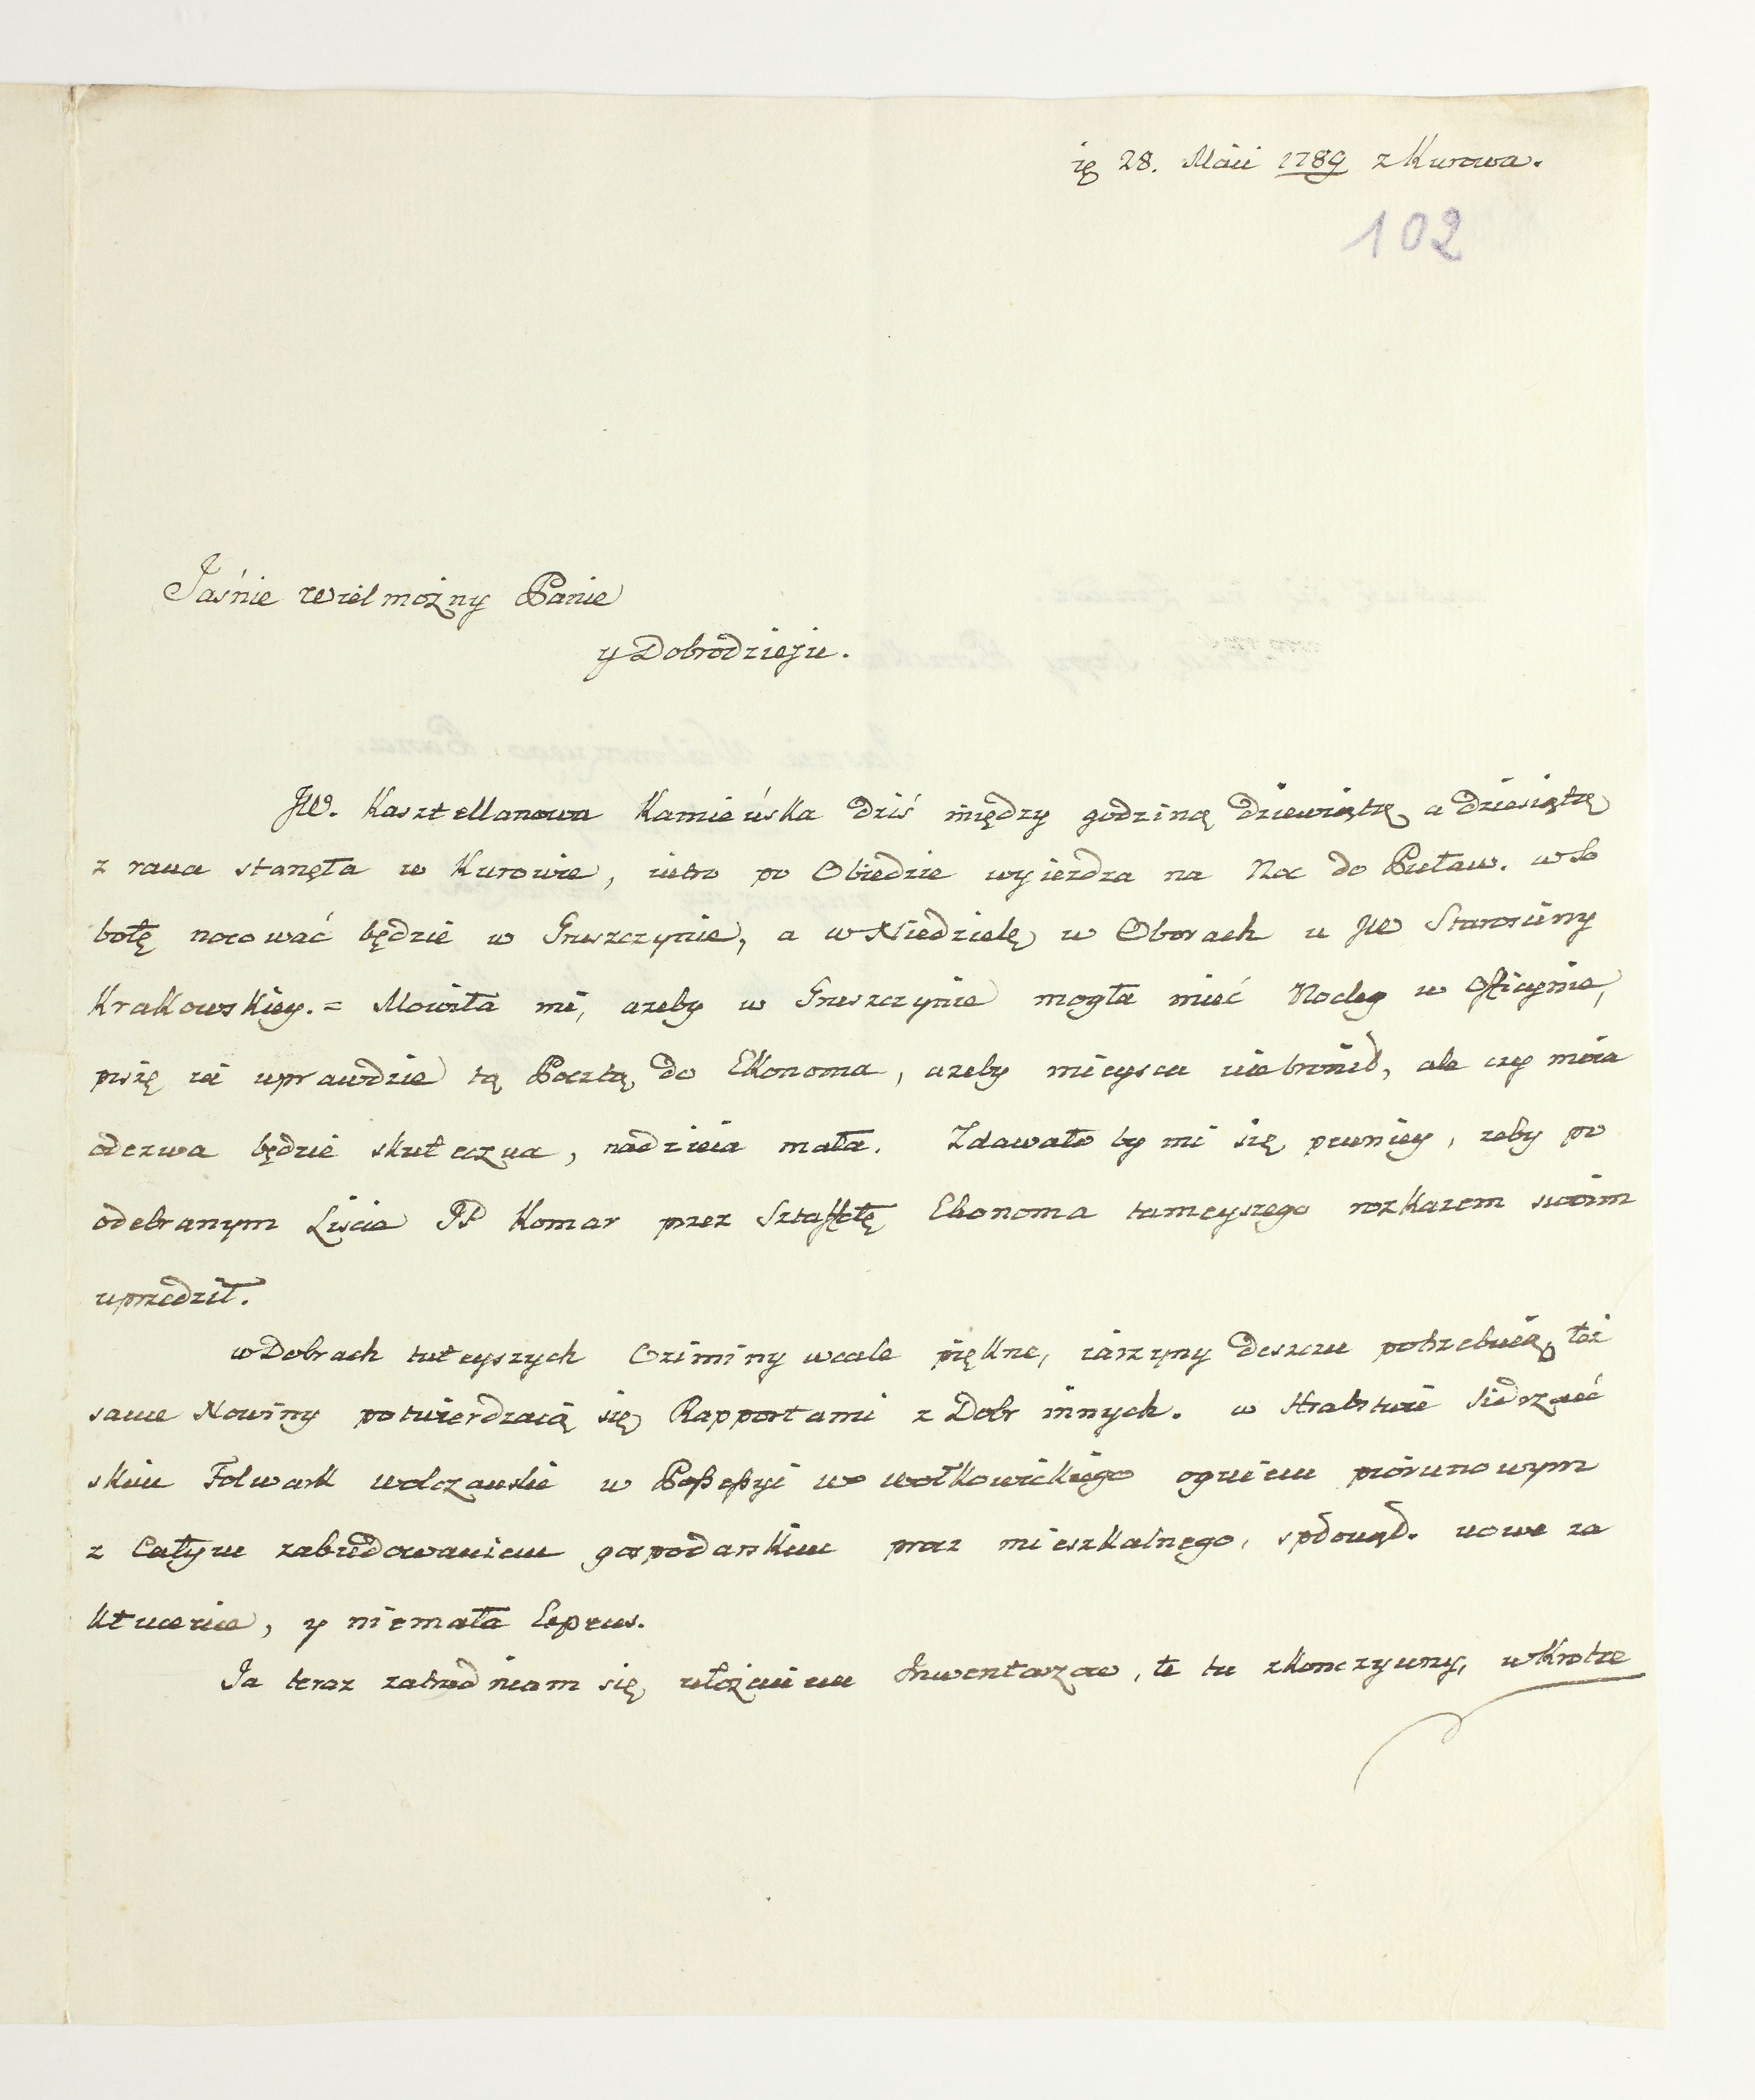 28. Maii 1789 z Kurowa.
102
Jaśnie Wielmożny Panie
y Dobrodzieju.
JW. Kasztellanowa Kamieńska dziś między godziną dziewiątą a dziesiątą
z rana stanęła w Kurowie, iutro po Obiedzie wyiezdza na Noc do Puław. w So
botę nocować będzie w Greszczynie, a w Niedzielę w Oborach u JW Starościny
Krakowskiey. = Mowiła mi, azeby w Greszczynie mogła mieć Nocleg w Oficynie,
piszę ia wprawdzie tą Pocztą do Ekonoma, azeby mieysca niebronił, ale czy moia
odezwa będzie skuteczna, nadzieia mała. Zdawało by mi się pewniey, zeby po
odebranym Liście JP Komar przez Sztaffetę Ekonoma tameyszego rozkazem swoim
uprzedził.
w Dobrach tuteyszych Oziminy wcale piękne, iarzyny deszczu potrzebuią, też
same Nowiny potwierdzaią się Rapportami z Dobr innych. w Hrabstwie
skim Folwark wolczanski w Poßeßyi Wo Wołkowickiego ogniem piorunowym
z całym zabudowaniem gospodarskim prócz mieszkalnego, spłonął. nowe za
kłucenie, y niemała Expens.
Ja teraz zatrudniam się ułożeniem Inwentarzow, te tu zkonczywszy, wKrotce